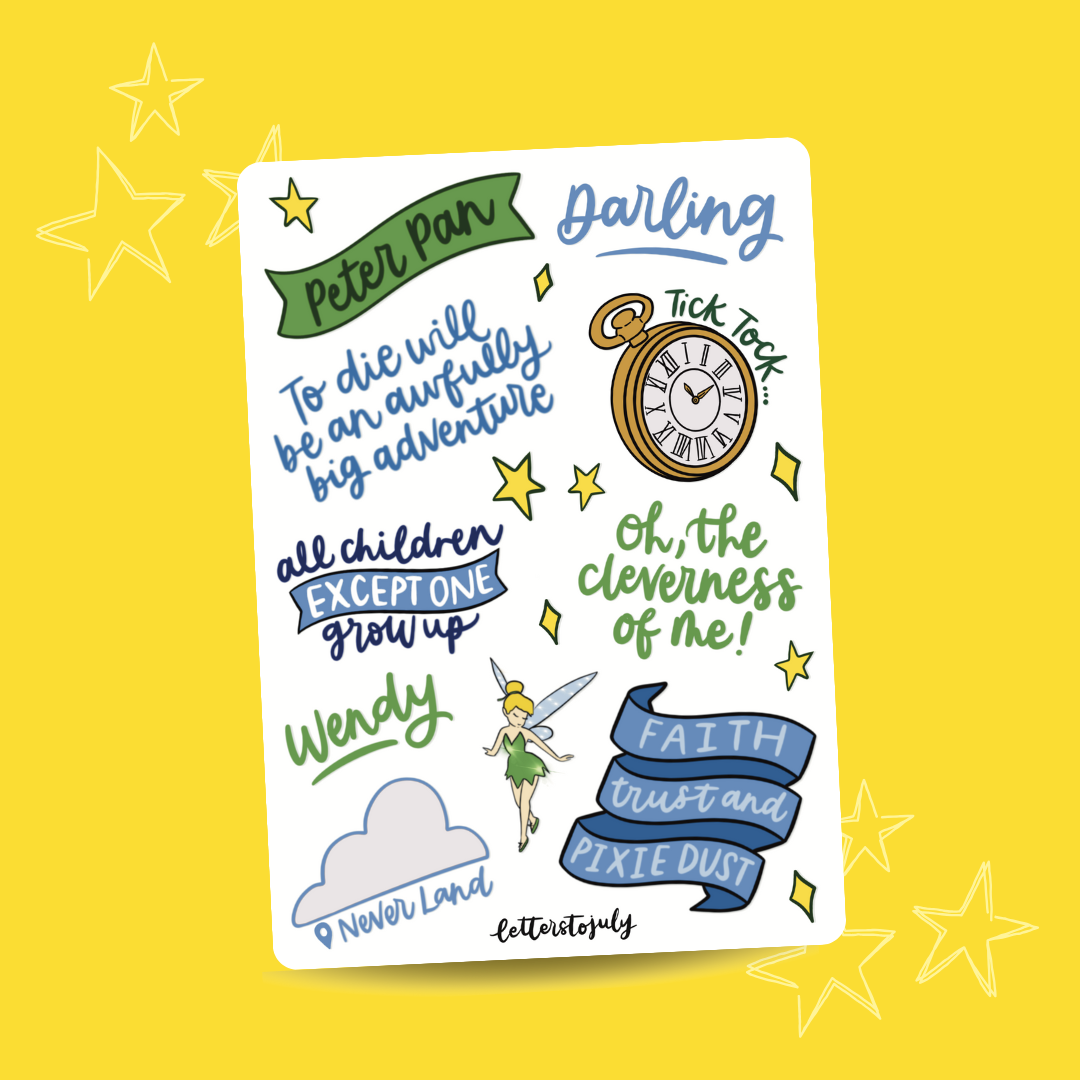 Peter Pan
Darling
Tick Tock...
To die will
be an awfully
big adventure
I II III IIII V VI VII VIII IX X XI XII
all children
EXCEPT ONE
grow up
Oh, the
cleverness
of me!
Wendy
FAITH
trust and
PIXIE DUST
Never Land
letterstojuly